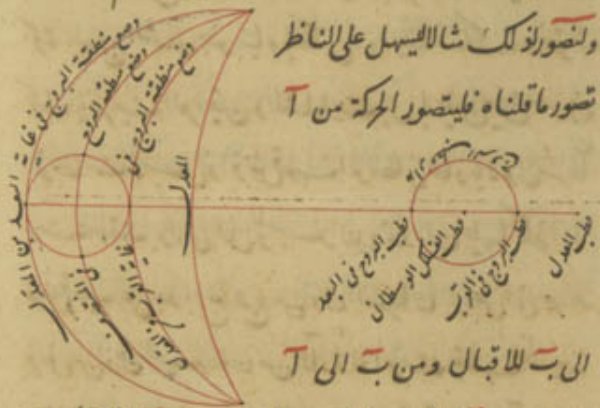 ولنصور لذلك مثالا ليسهل على الناظر
تصور ما قلناه فليتصور الحركة من آ
الى ب للاقبال ومن ب الى آ
وضع منطقة البروج في غاية البعد من المعدل
وضع منطقة البروج في النصف
وضع منطقة البروج في غاية القرب من المعدل
المعدل
قطب البروج في البعد
قطب الفلك الوسطاني
قطب البروج في القرب
قطب المعدل